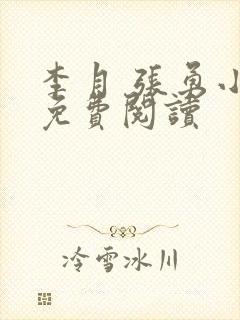 李月張勇小
免費閱讀
冷雪冰川